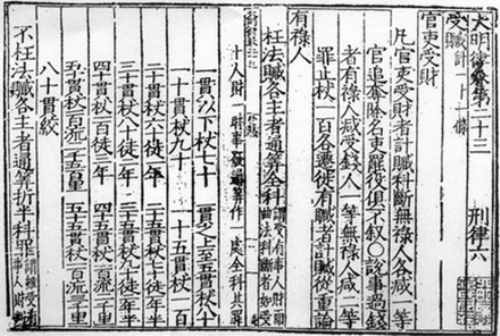 大明律卷第二十三
刑律六
受贓計一十一條
官吏受財
凡官吏受財者計贓科斷無祿人各減一等
官追奪除名吏罷役俱不叙○說事過錢
者有祿人減受錢人一等無祿人減二等
罪止杖一百各遷徙有贓者計贓從重論
有祿人
枉法贓各主者通算全科謂受有事人財而曲法科斷者如受
十人財一時事發通算作一處全科其罪
一貫以下杖七十 一貫之上至五貫杖八十
一十貫杖九十 一十五貫杖一百
二十貫杖六十徒一年 二十五貫杖七十徒一年半
三十貫杖八十徒二年 三十五貫杖九十徒二年半
四十貫杖一百徒三年 四十五貫杖一百流二千里
五十貫杖一百流二千五百里 五十五貫杖一百流三千里
八十貫絞
不枉法贓各主者通算折半科罪謂雖受有事人財